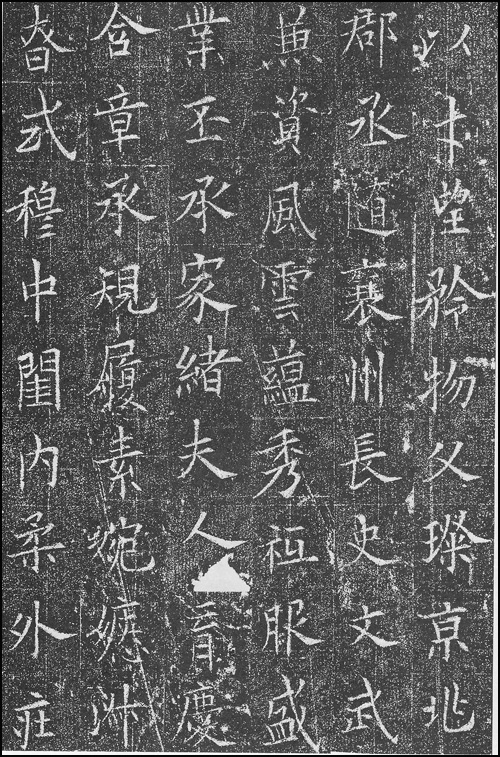 以才望矜物父璨京兆
郡丞道襄州長史文武
兼資風雲蘊秀祗服盛
業丕承家緒夫人育慶
含章承規履素婉嫕淑
昚式穆中閨内柔外莊